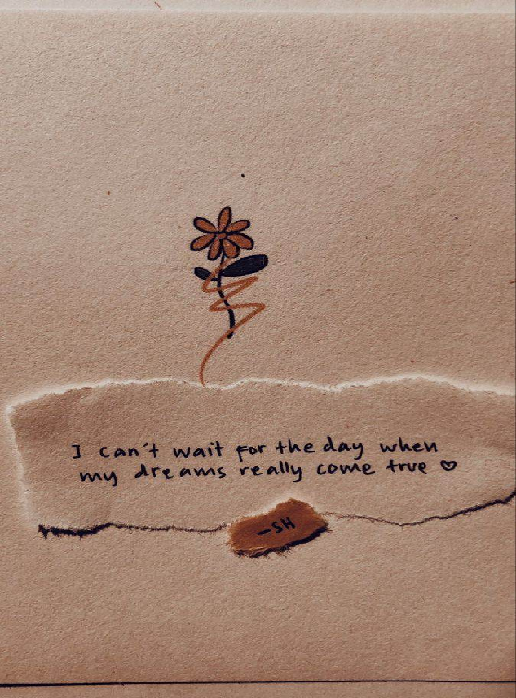 I can't wait for the day when
my dreams really come true ♡
—SH